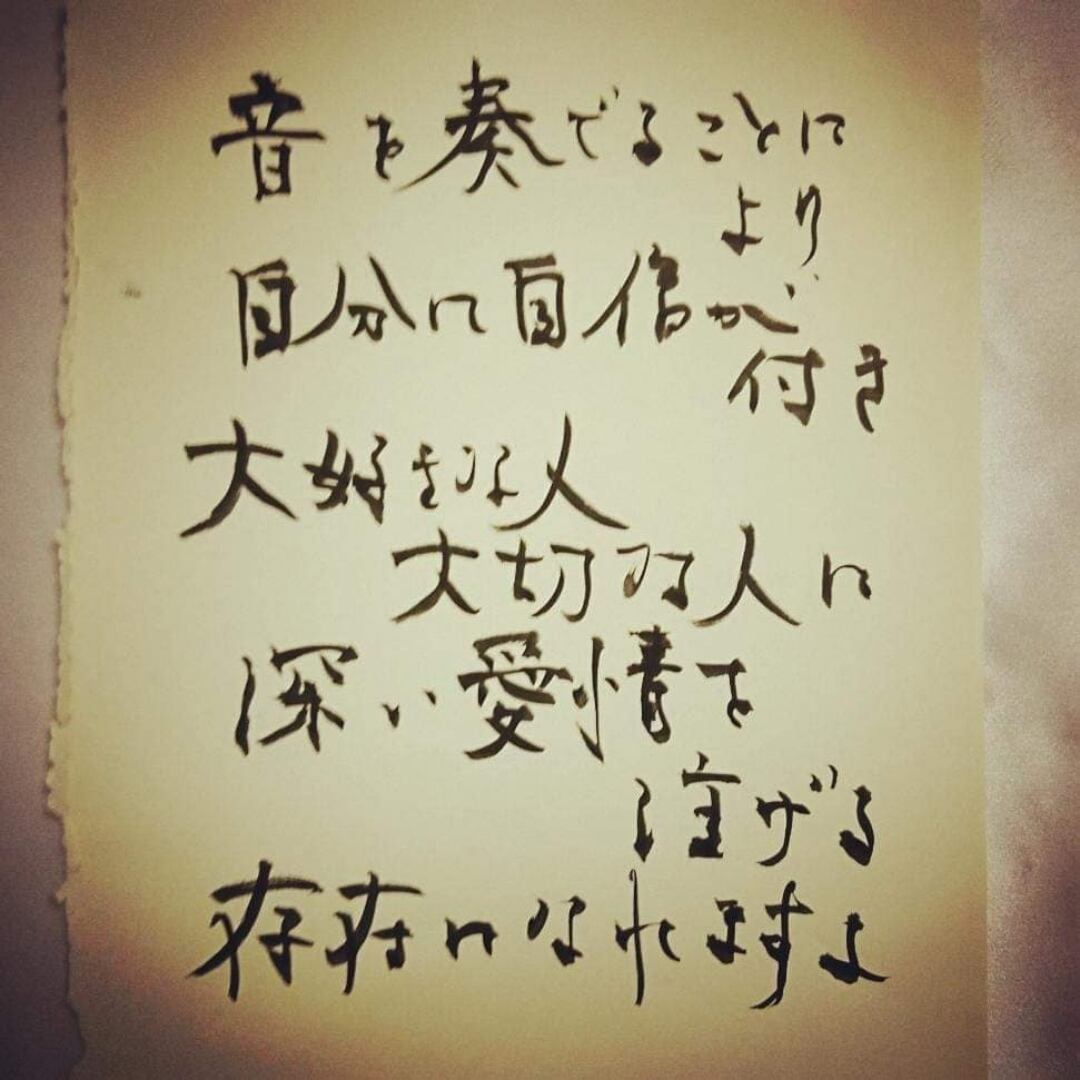 音を奏でることに
より
自分に自信が
付き
大好きな人
大切な人に
深い愛情を
注げる
存在になれますよ